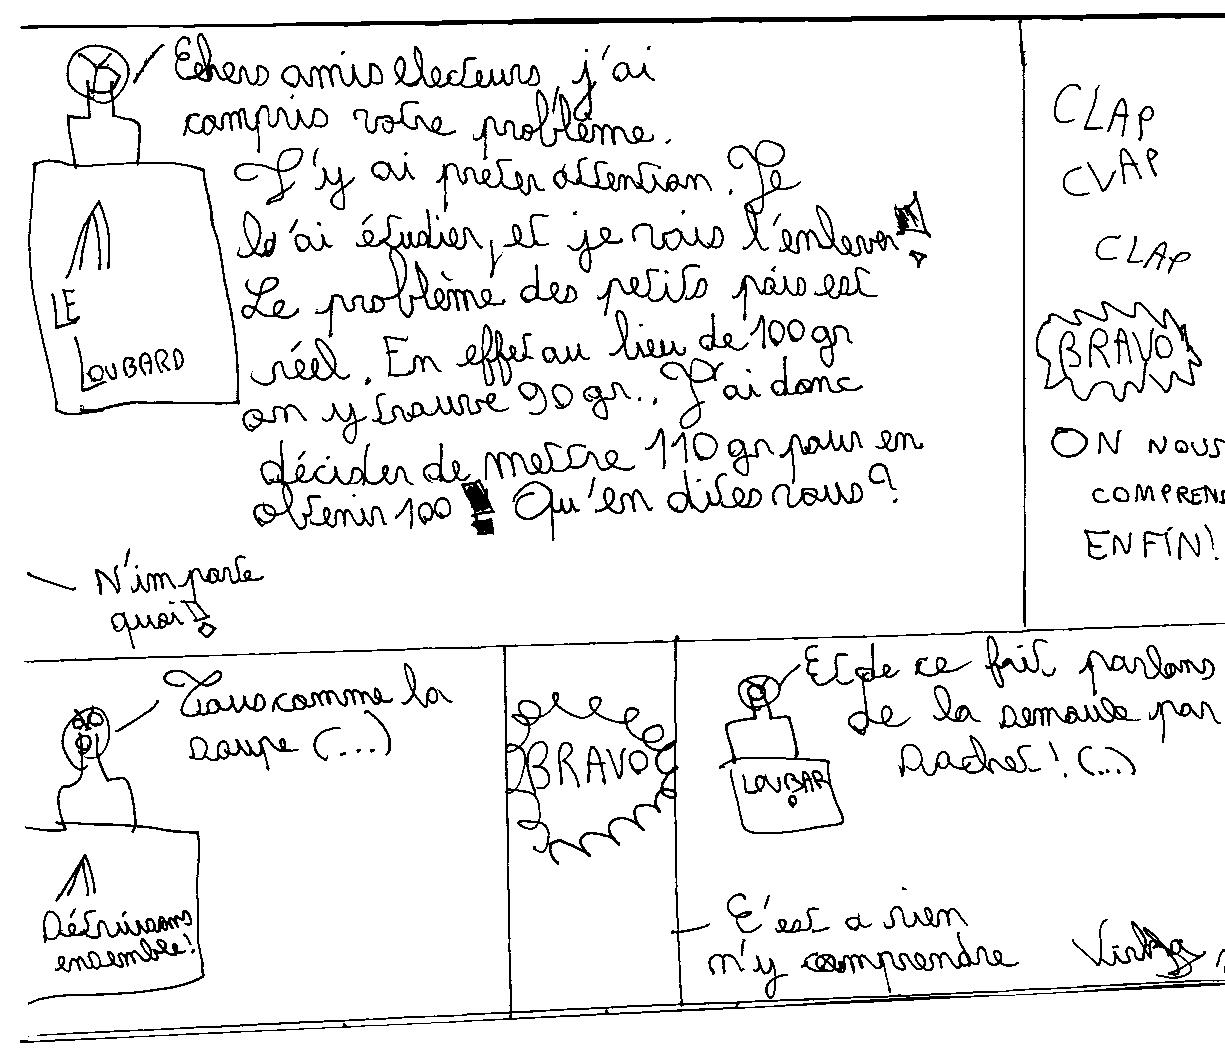 Chers amis électeurs, j'ai
compris votre problème.
J'y ai prêter attention. Je
l'ai étudier, et je vais l'enlever!
Le problème des petits pois est
réel. En effet au lieu de 100gr
on y trouve 90 gr.. J'ai donc
décider de mettre 110 gr pour en
obtenir 100! Qu'en dites vous?
LE
LOUBARD
N'importe
quoi!
CLAP
CLAP
CLAP
BRAVO
ON NOUS
COMPREND
ENFIN!
Tous comme la
soupe (...)
Détruisons
ensemble!
BRAVO
Et de ce fait parlons
de la semoule par
sachet! (...)
LOUBAR
C'est a rien
n'y comprendre